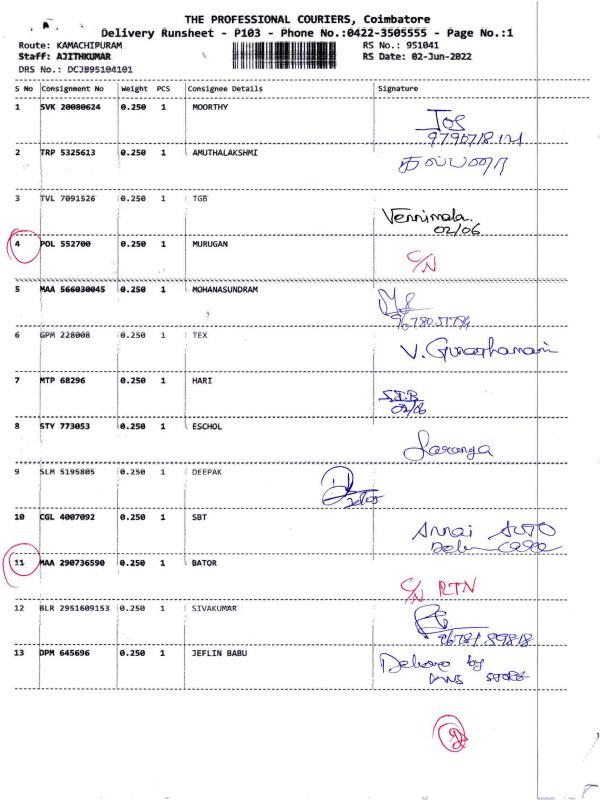 THE PROFESSIONAL COURIERS, Coimbatore
Delivery Runsheet - P103 - Phone No.:0422-3505555 - Page No.:1
Route: KAMACHIPURAM RS No.: 951041
Staff: AJITHKUMAR RS Date: 02-Jun-2022
DRS No.: DCJB95104101
S No Consignment No Weight PCS Consignee Details Signature
1 SVK 20080624 0.250 1 MOORTHY
2 TRP 5325613 0.250 1 AMUTHALAKSHMI
3 TVL 7091526 0.250 1 TGB
Vennimala.
02/06
4 POL 552700 0.250 1 MURUGAN C/N
5 MAA 566030045 0.250 1 MOHANASUNDRAM
6 GPM 228008 0.250 1 TEX
7 MTP 68296 0.250 1 HARI
02/06
8 STY 773053 0.250 1 ESCHOL
Saranya
9 SLM 5195805 0.250 1 DEEPAK
10 CGL 4007092 0.250 1 SBT
Annai AUTO
11 MAA 290736590 0.250 1 BATOR
C/N RTN
12 BLR 2951609153 0.250 1 SIVAKUMAR
13 DPM 645696 0.250 1 JEFLIN BABU
by
STORE